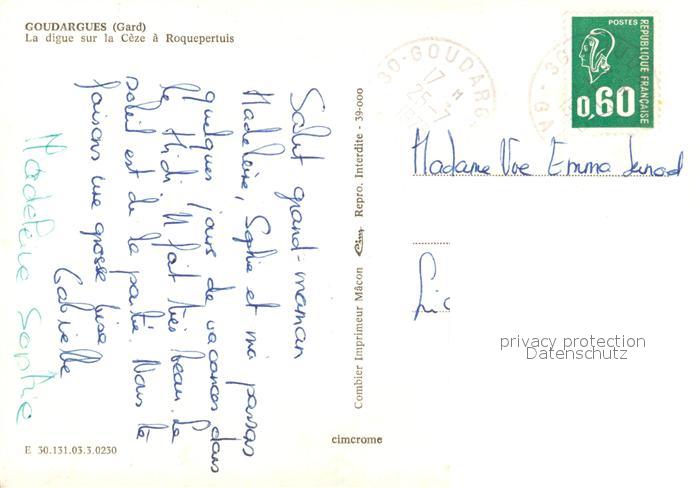 GOUDARGUES (Gard)
La digue sur la Cèze à Roquepertuis
Salut grand-maman
Madeleine, Sophie et moi passons
quelques jours de vacances dans
le Midi. Il fait très beau. Le
soleil est de la partie. Nous te
faisons une grosse bise
Gabrielle
Madeleine Sophie
E 30.131.03.3.0230
Combier Imprimeur Mâcon Cim Repro. Interdite - 39-000
cimcrome
30-GOUDARG
17 H
25-7
POSTES
REPUBLIQUE FRANÇAISE
0,60
Madame Vve Emma
privacy protection
Datenschutz